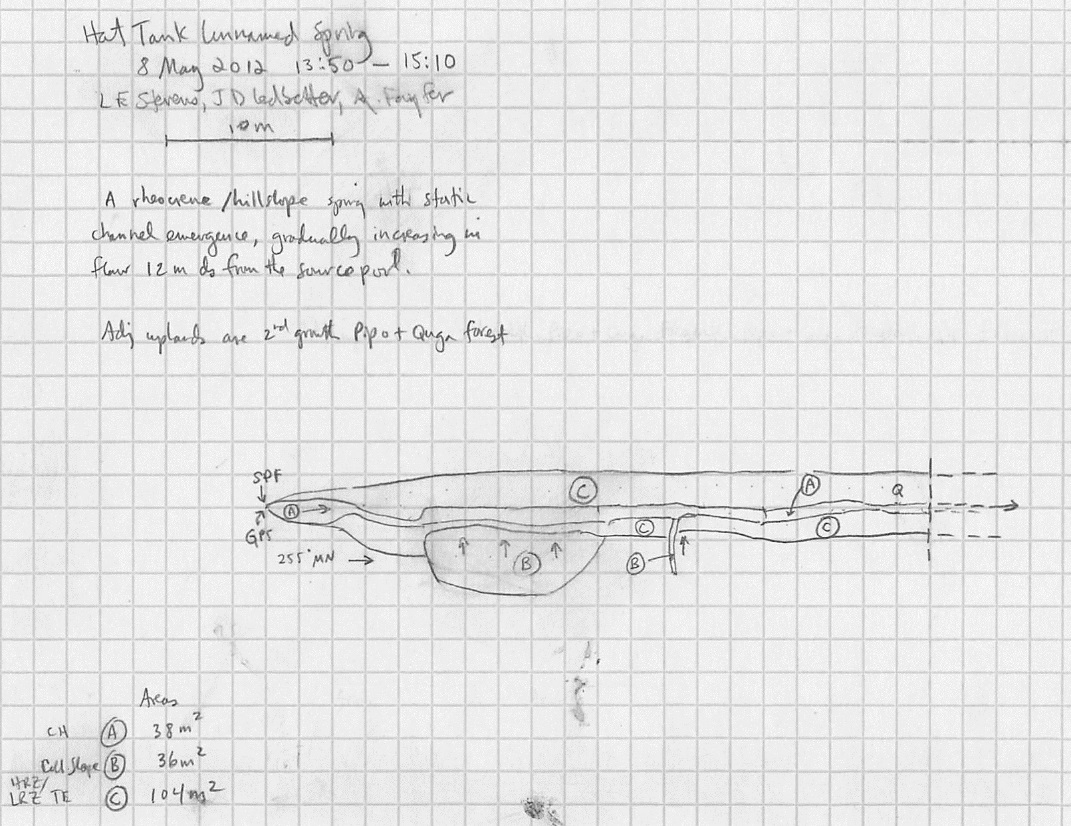 Hat Tank Unnamed Spring
8 May 2012 13:50 — 15:10
LE Stevens, JD Ledbetter, A.
10m
A rheocrene /hillslope spring with static
channel emergence, gradually increasing in
flow 12 m ds from the source point.
Adj uplands are 2nd growth Pipo + Quga forest
SPF
GPS
A
C
A
Q
C
C
B
B
255° MN
Areas
CH A 38 m²
Coll Slope B 36 m²
HRZ/
LRZ TE C 104 m²